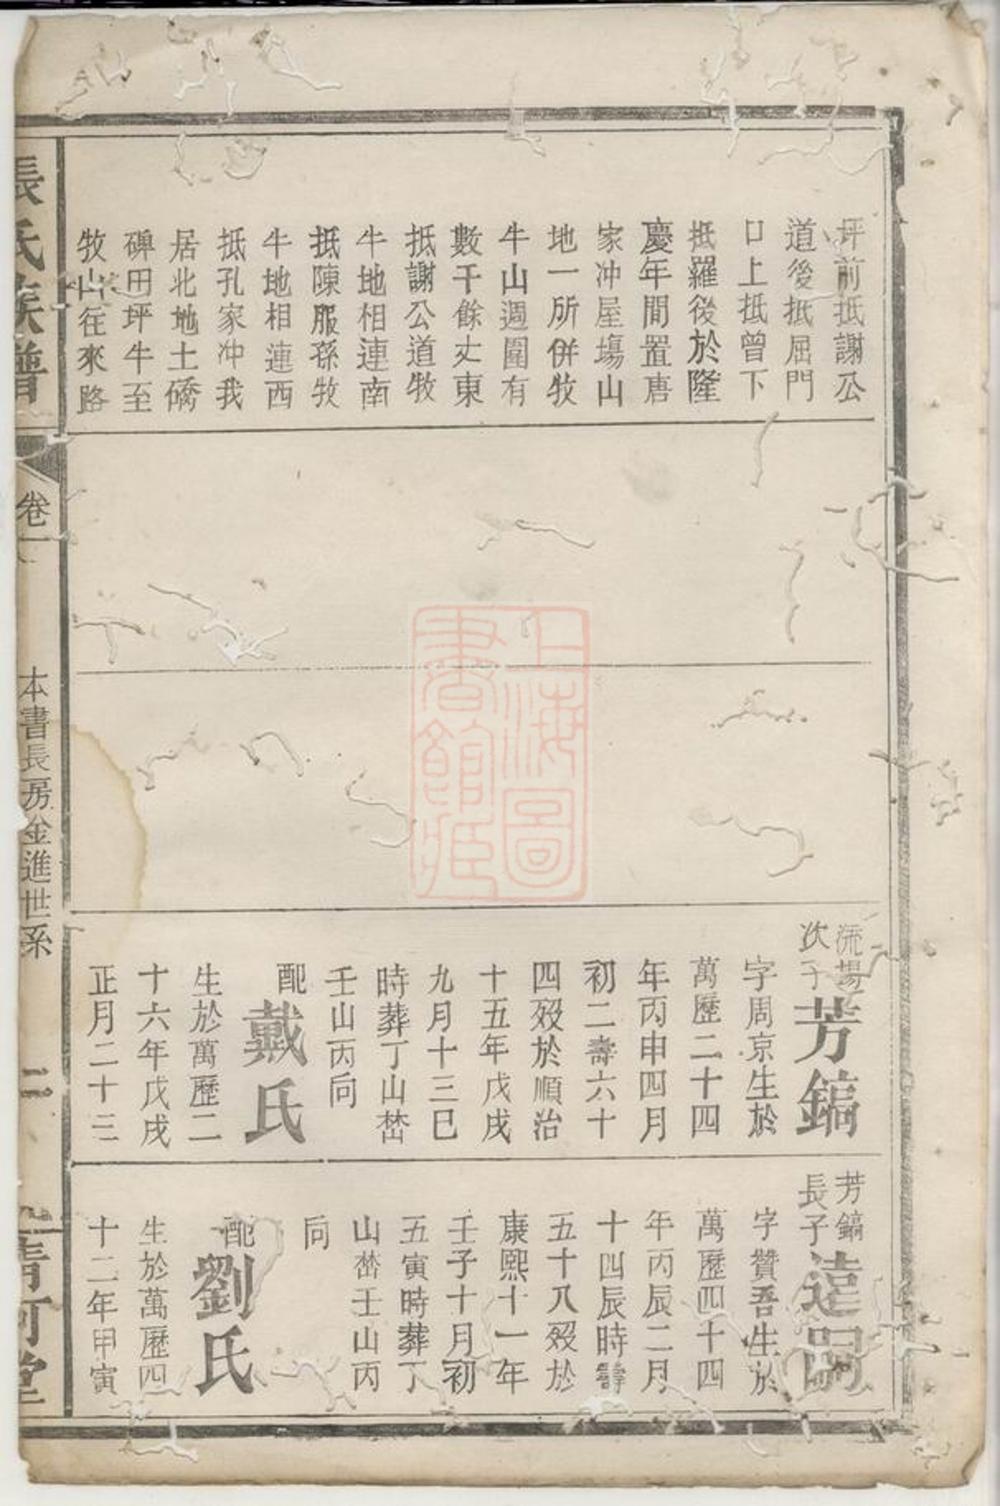 坪前抵謝公
道後抵屈門
口上抵曾下
抵羅後於隆
慶年間置唐
家冲屋塲山
地一所併牧
牛山週圍有
數千餘丈東
抵謝公道牧
牛地相連南
抵陳服孫牧
牛地相連西
抵孔家冲我
居北地土礄
碑田坪牛至
牧山往來路
流揚
次子
芳鎬
字周京生於
萬歷二十四
年丙申四月
初二壽六十
四殁於順治
十五年戊戌
九月十三巳
時葬丁山嵆
壬山丙向
配
戴氏
生於萬歷二
十六年戊戌
正月二十三
芳鎬
長子
遠嗣
字贊吾生於
萬歷四十四
年丙辰二月
十四辰時壽
五十八殁於
康熙十一年
壬子十月初
五寅時葬丁
山嵆壬山丙
向
配
劉氏
生於萬歷四
十二年甲寅
張氏族譜
卷一
本書長房金進世系
二
清河堂
上海圖
書館藏